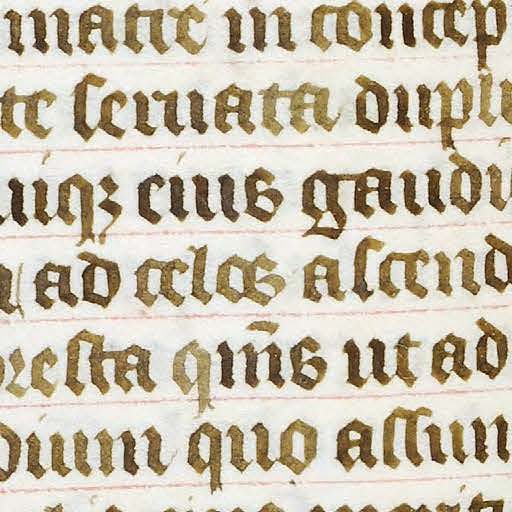 matre in concep
te seruata dupli
uiqꝫ eius gaudi
ad celos ascend
presta qm̄s ut ad
dum quo assum